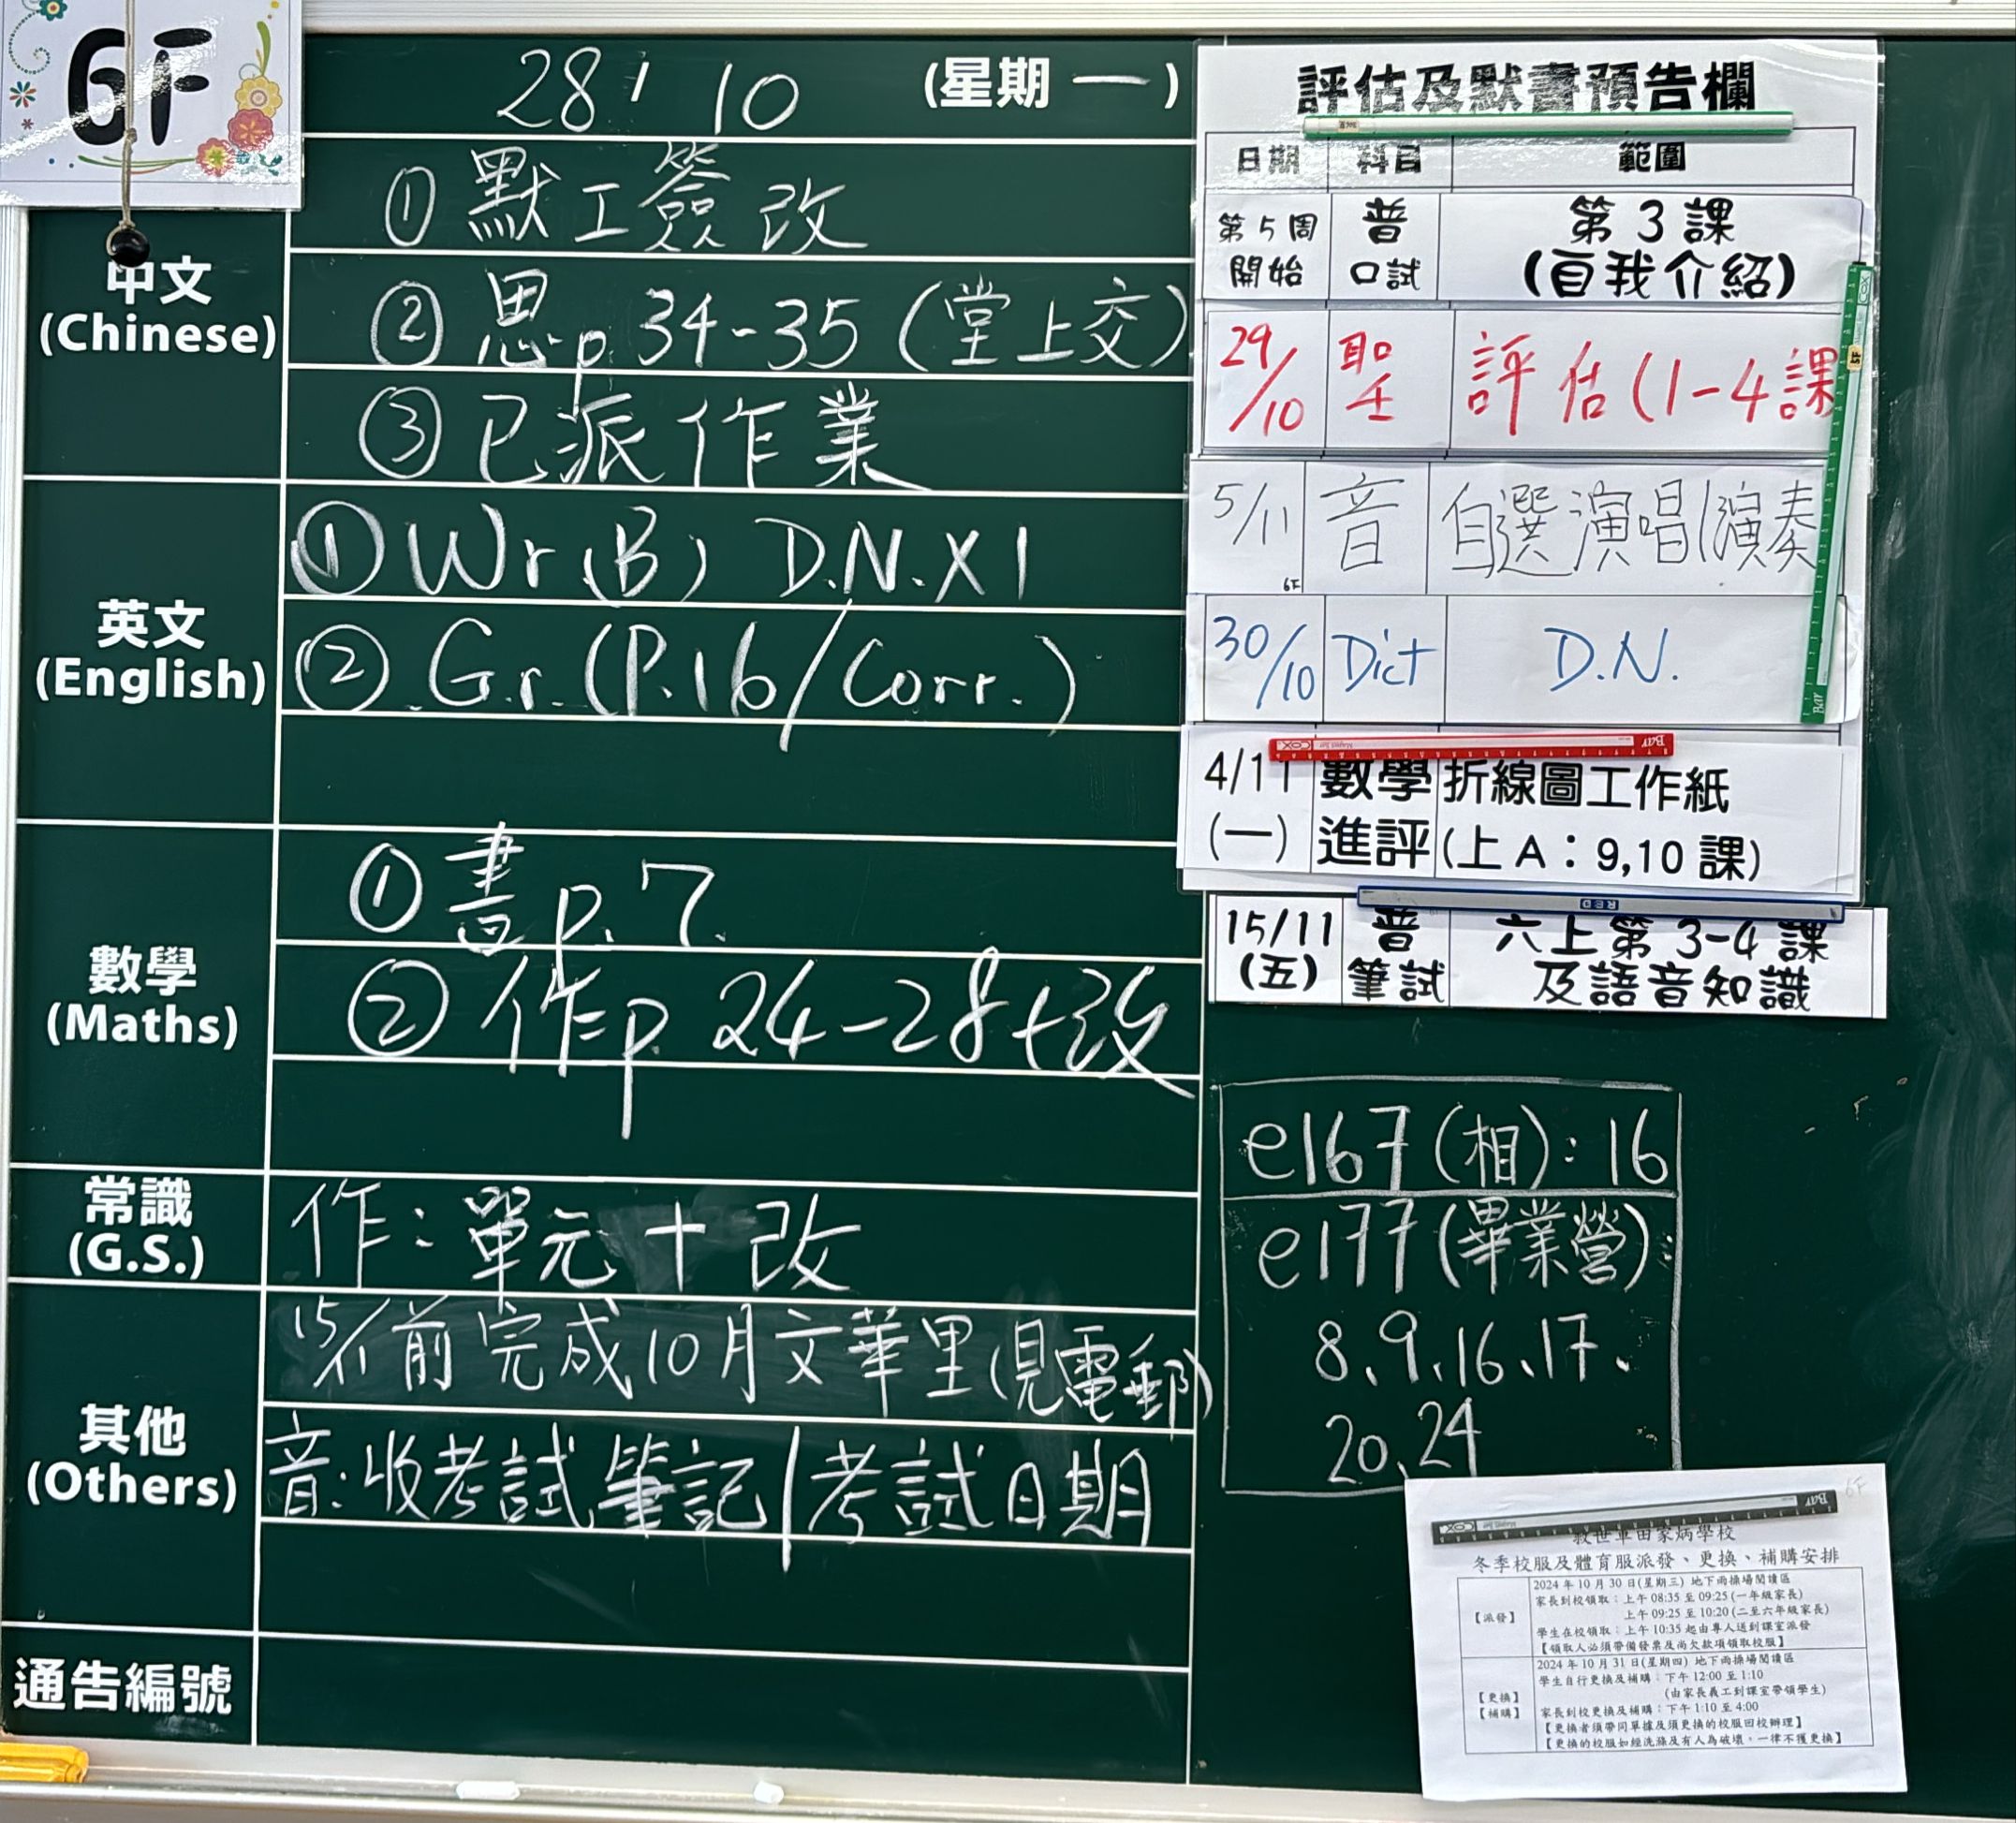 6F
28 / 10 (星期 一 )
中文
(Chinese)
① 默工簽改
② 思p. 34-35 (堂上交)
③ 已派作業
英文
(English)
① Wr.(B) D.N.X1
② Gr.(P.16/Corr.)
數學
(Maths)
① 書p.7.
② 作p. 24-28+改
常識
(G.S.)
作：單元+改
其他
(Others)
前完成10月文華里(見電郵)
音:收考試筆記/考試日期
通告編號
評估及默書預告欄
日期 科目 範圍
第5周 普 第3課
開始 口試 (自我介紹)
29/10 聖 評估(1-4課
5/11 音 自選演唱/演奏
6F
30/10 Dict D.N.
4/11 數學 折線圖工作紙
(一) 進評 (上A：9,10課)
15/11 普 六上第3-4課
(五) 筆試 及語音知識
e167(相):16
e177(畢業營):
8、9、16、17、
20、24
6F
救世軍田家炳學校
冬季校服及體育服派發、更換、補購安排
【派發】
2024年10月30日(星期三) 地下雨操場閱讀區
家長到校領取：上午08:35至09:25(一年級家長)
上午09:25至10:20(二至六年級家長)
學生在校領取：上午10:35起由專人送到課室派發
【領取人必須帶備發票及尚欠款項領取校服】
【更換】
【補購】
2024年10月31日(星期四) 地下雨操場閱讀區
學生自行更換及補購：下午12:00至1:10
(由家長義工到課室帶領學生)
家長到校更換及補購：下午1:10至4:00
【更換者須帶同單據及須更換的校服回校辦理】
【更換的校服如經洗滌及有人為破壞，一律不獲更換】